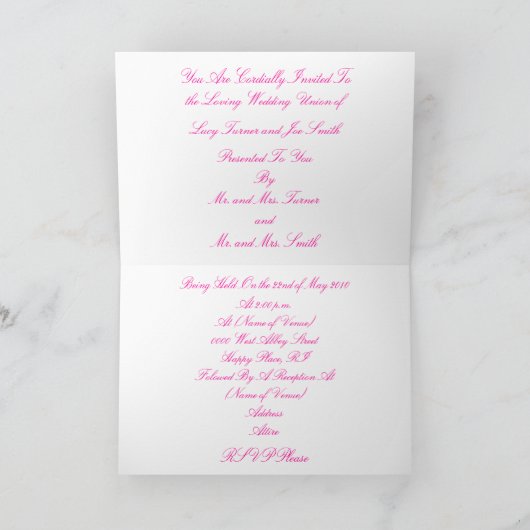 You Are Cordially Invited To
the Loving Wedding Union of
Lucy Turner and Joe Smith
Presented To You
By
Mr. and Mrs. Turner
and
Mr. and Mrs. Smith
Being Held On the 22nd of May 2010
At 2:00 p.m.
At (Name of Venue)
0000 West Abbey Street
Happy Place, RI
Folowed By A Reception At
(Name of Venue)
Address
Attire
RSVP Please